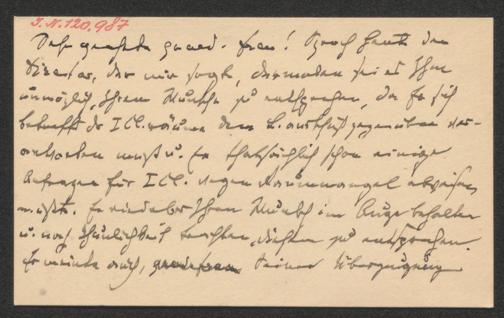 J.N. 120,987
Sehr geehrte gnäd. Frau! Sprach heute den
Direktor, der mir sagt, derweilen sei es ihm
unmöglich, Ihrem Wunsche zu entsprechen, da er sich
betreffs der ICl. räume dem gegenüber ver-
antworten muß u. er thatsächlich schon einige
Anfragen für ICl. wegen Raummangel abweisen
mußte. Er wird aber Ihren Wunsch im Auge behalten
u. nach Thunlichkeit trachten, diesem zu entsprechen.
Er meinte auch, seiner Überzeugung